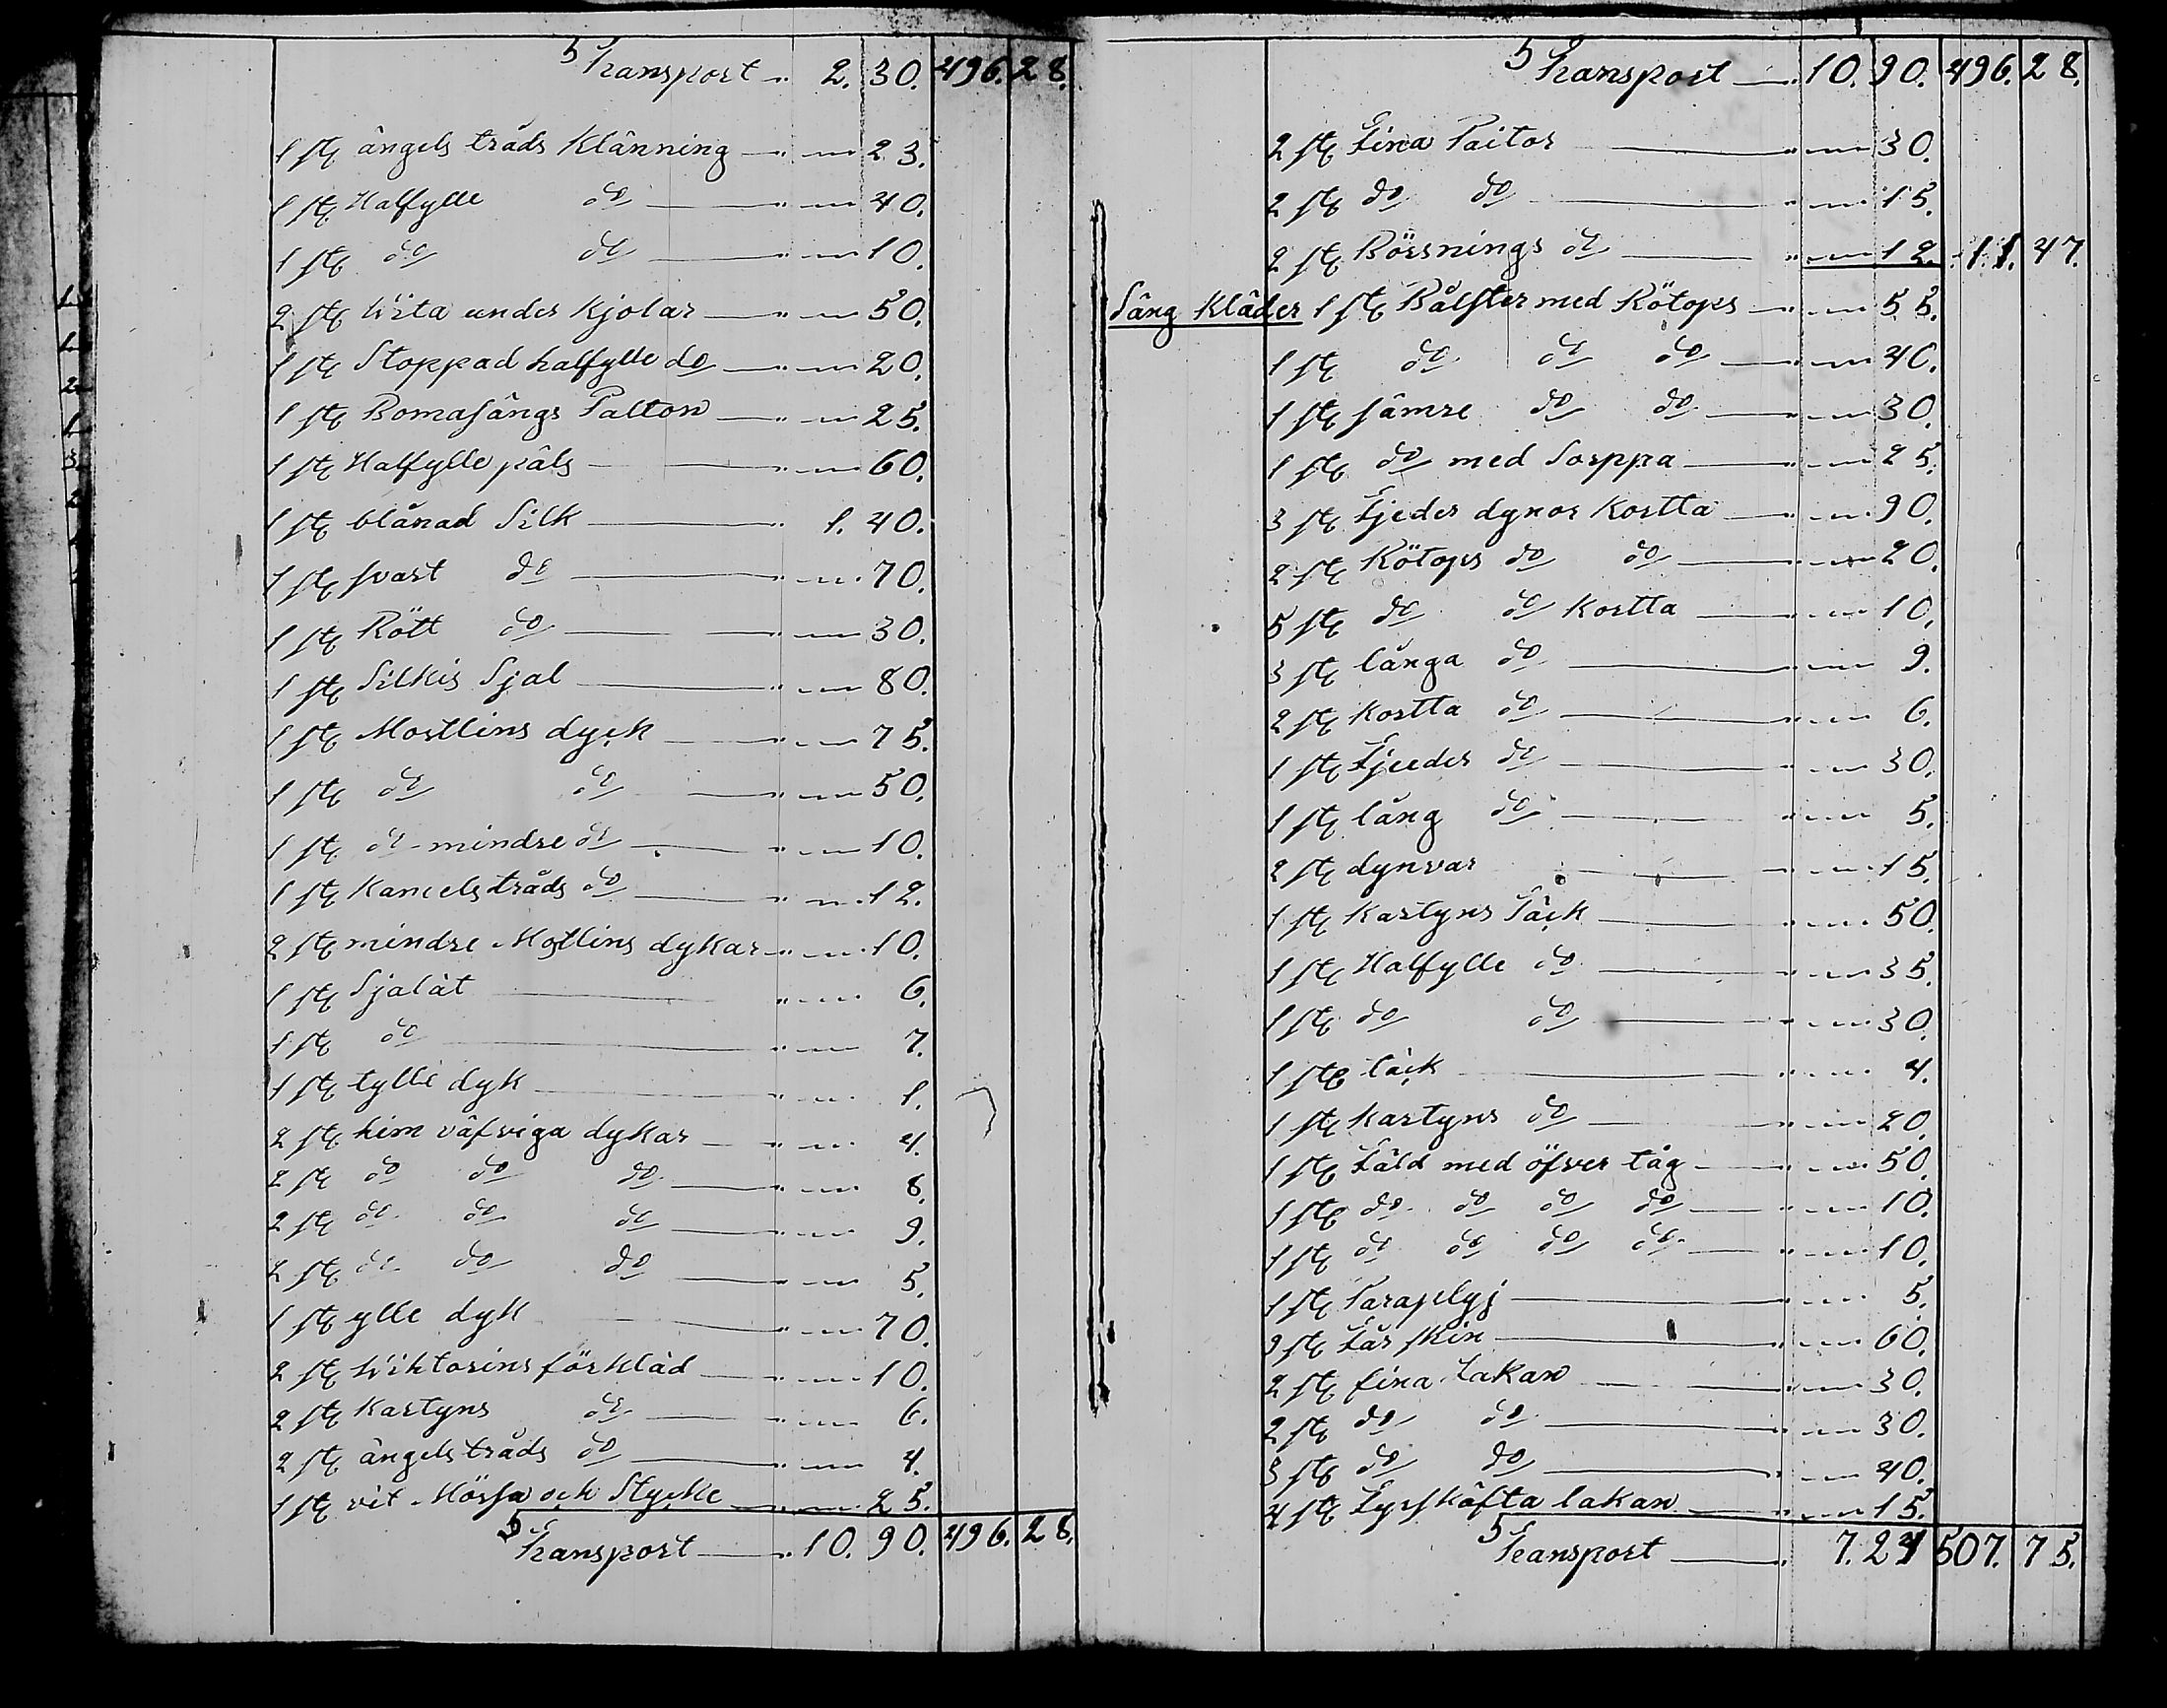 Transport 2. 30. 496. 28.
1 st ängels tråds Klänning 23.
1 st Halfylle do 40.
1 st do do 10.
2 st Wita under Kjolar 50.
1 st Stoppad halfylle do 20.
1 st Bomasängs Palton 25.
1 st Halfylle päls 60.
1 st blånad Silk 1. 40.
1 st svart do 70.
1 st Rött do 30.
1 st Silkis Sjal 80.
1 st Mostlins dyck 75.
1 st do do 50.
1 st do mindre do 10.
1 st Kamelstråds do 12.
2 st mindre Motlins dykar 10.
1 st Sjalåt 6.
1 st do 7.
1 st tylle dyk 1.
2 st him väfviga dykar 4.
2 st do do do 8.
2 st do do do 9.
2 st do do do 5.
1 st ylle dyk 70.
2 st Wiktorins förkläd 10.
2 st Kartyns do 6.
2 st ängelstråds do 4.
1 st vit Mössa och Stycke 25.
Transport 10. 90. 496. 28.
Transport 10. 90. 496. 28.
2 st Fina Paitor 30.
2 st do do 15.
2 st Börsnings do 12. 11. 47.
Säng Kläder 1 st Bålster med Rötops 55.
1 st do do do 40.
1 st sämre do do 30.
1 st do med Sorppa 25.
3 st Fjeder dynor Kortta 90.
2 st Rötops do do 20.
5 st do do Kortta 10.
3 st långa do 9.
2 st Kortta do 6.
1 st Fjeeder do 30.
1 st lång do 5.
2 st dynvar 15.
1 st Kartyns Täck 50.
1 st Halfylle do 35.
1 st do do 30.
1 st täck 4.
1 st Kartyns do 20.
1 st Fäld med öfver tåg 50.
1 st do do do do 10.
1 st do do do do 10.
1 st Paraplyj 5.
3 st Får skin 60.
2 st fina Lakan 30.
2 st do do 30.
3 st do do 40.
4 st Fyrskäfta lakan 15.
Transport 7. 24 507. 75.